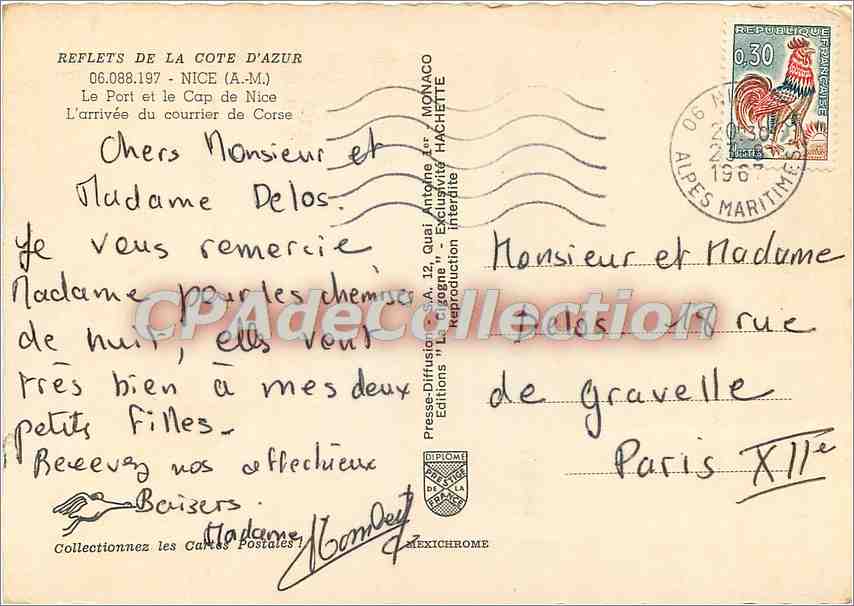 REFLETS DE LA COTE D'AZUR
06.088.197 - NICE (A.-M.)
Le Port et le Cap de Nice
L'arrivée du courrier de Corse
Chers Monsieur et
Madame Delos.
Je vous remercie
Madame pour les chemises
de nuit, elles vont
très bien à mes deux
petits Filles-
Recevez nos affectueux
Baisers.
Madame
Collectionnez les Cartes Postales !
Presse-Diffusion - S.A. 12, Quai Antoine 1er - MONACO
Editions "La Cigogne" - Exclusivité HACHETTE
Reproduction interdite
DIPLOME
PRESTIGE
DE LA
FRANCE
MEXICHROME
REPUBLIQUE FRANÇAISE
0,30
06 NI
20:30
1967
ALPES MARITIMES
Monsieur et Madame
Delos 18 rue
de gravelle
Paris XIIe
CPAdeCollection.com